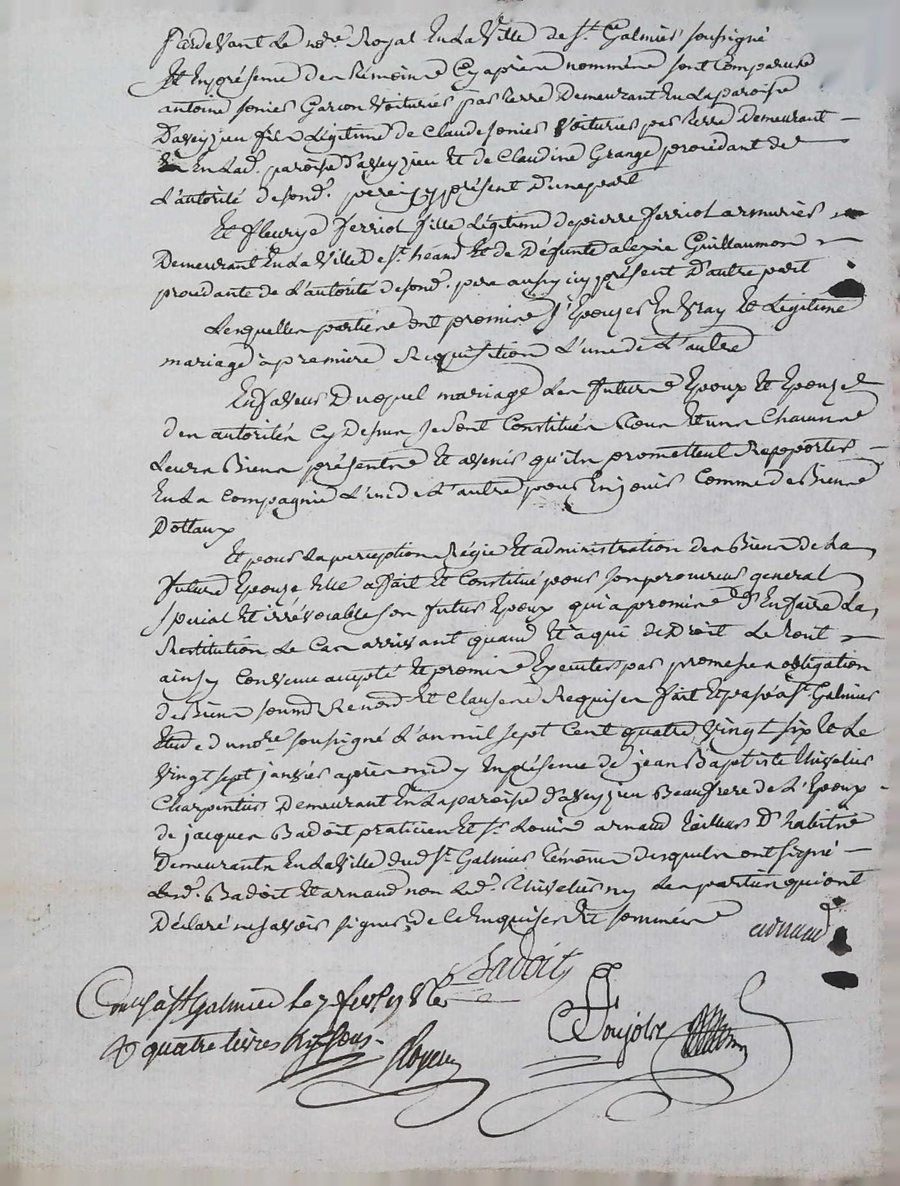 Pardevant Le nore Royal En La Ville de St. Galmier soussigné
Et En présence des témoins Cy après nommés sont Comparus
antoine sonier Garcon Voiturier par terre Demeurant En La paroisse
D'aveyzieu fils Légitime de Claude sonier Voiturier par terre Demeurant
En Lad. paroisse d'aveyzieu Et de Claudine Grange procédant de
L'autorité de sond. pere icy présent D'une part
Et fleurye ferriol fille Légitime de pierre ferriol armurier
Demeurant En La Ville De St. héand Et de Défunte alexie Guillaumon
procédante de L'autorité de sond. pere aussy icy présent D'autre part
Lesquelles parties ont promis S'Epouser En Vray Et Légitime
mariage à premiere Requisition L'une de L'autre
En faveur Duquel mariage Les future Epoux Et Epouze
des autorités Cy Dessus se sont Constitués Tous Et uns Chacuns
Leurs Biens présents Et avenir qu'ils promettent Repporter
En La Compagnie L'un de L'autre pour En jouir Comme de Biens
Dottaux
Et pour La perception Régie Et administration des Biens de La
future Epouze Elle a fait Et Constitué pour son procureur general
special Et irrévocable son futur Epoux qui a promis d'En faire La
Restitution Le Cas arrivant quand Et a qui de Droit Le tout
ainsy Convenu accepté Et promis Executer par promesses obligation
de Biens soumis Renon. Et Clauses Requises fait Et passé à St. Galmier
Etude du nore soussigné L'an mil sept Cent quatre Vingt six Et Le
Vingt sept janvier après midy En présence de jean Baptiste
Charpentier Demeurant En La paroisse d'aveyzieu Beaufrere de L'Epoux
de jacques Badoit praticien Et Sr. Louis arnaud tailleur D'habits
Demeurants En La Ville dud. St. Galmier témoins Lesquels ont signé
Led. Badoit Et arnaud non Led. ny Les parties qui ont
Déclaré ne savoir signer de Ce Enquises Et sommées
arnaud
Badoit
Conllé à St Galmier Le 7 fevrier 86
quatre livres sous